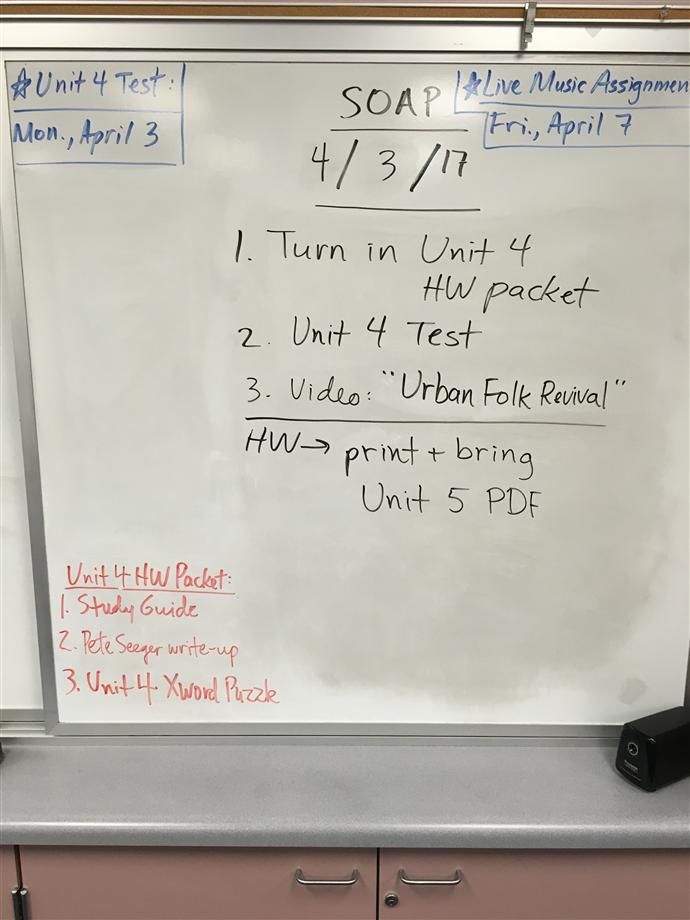 ☆Unit 4 Test:
Mon., April 3
SOAP
4/3/17
☆Live Music Assignmen
Fri., April 7
1. Turn in Unit 4
HW packet
2. Unit 4 Test
3. Video: "Urban Folk Revival"
HW→ print + bring
Unit 5 PDF
Unit 4 HW Packet:
1. Study Guide
2. Pete Seeger write-up
3. Unit 4 Xword Puzzle